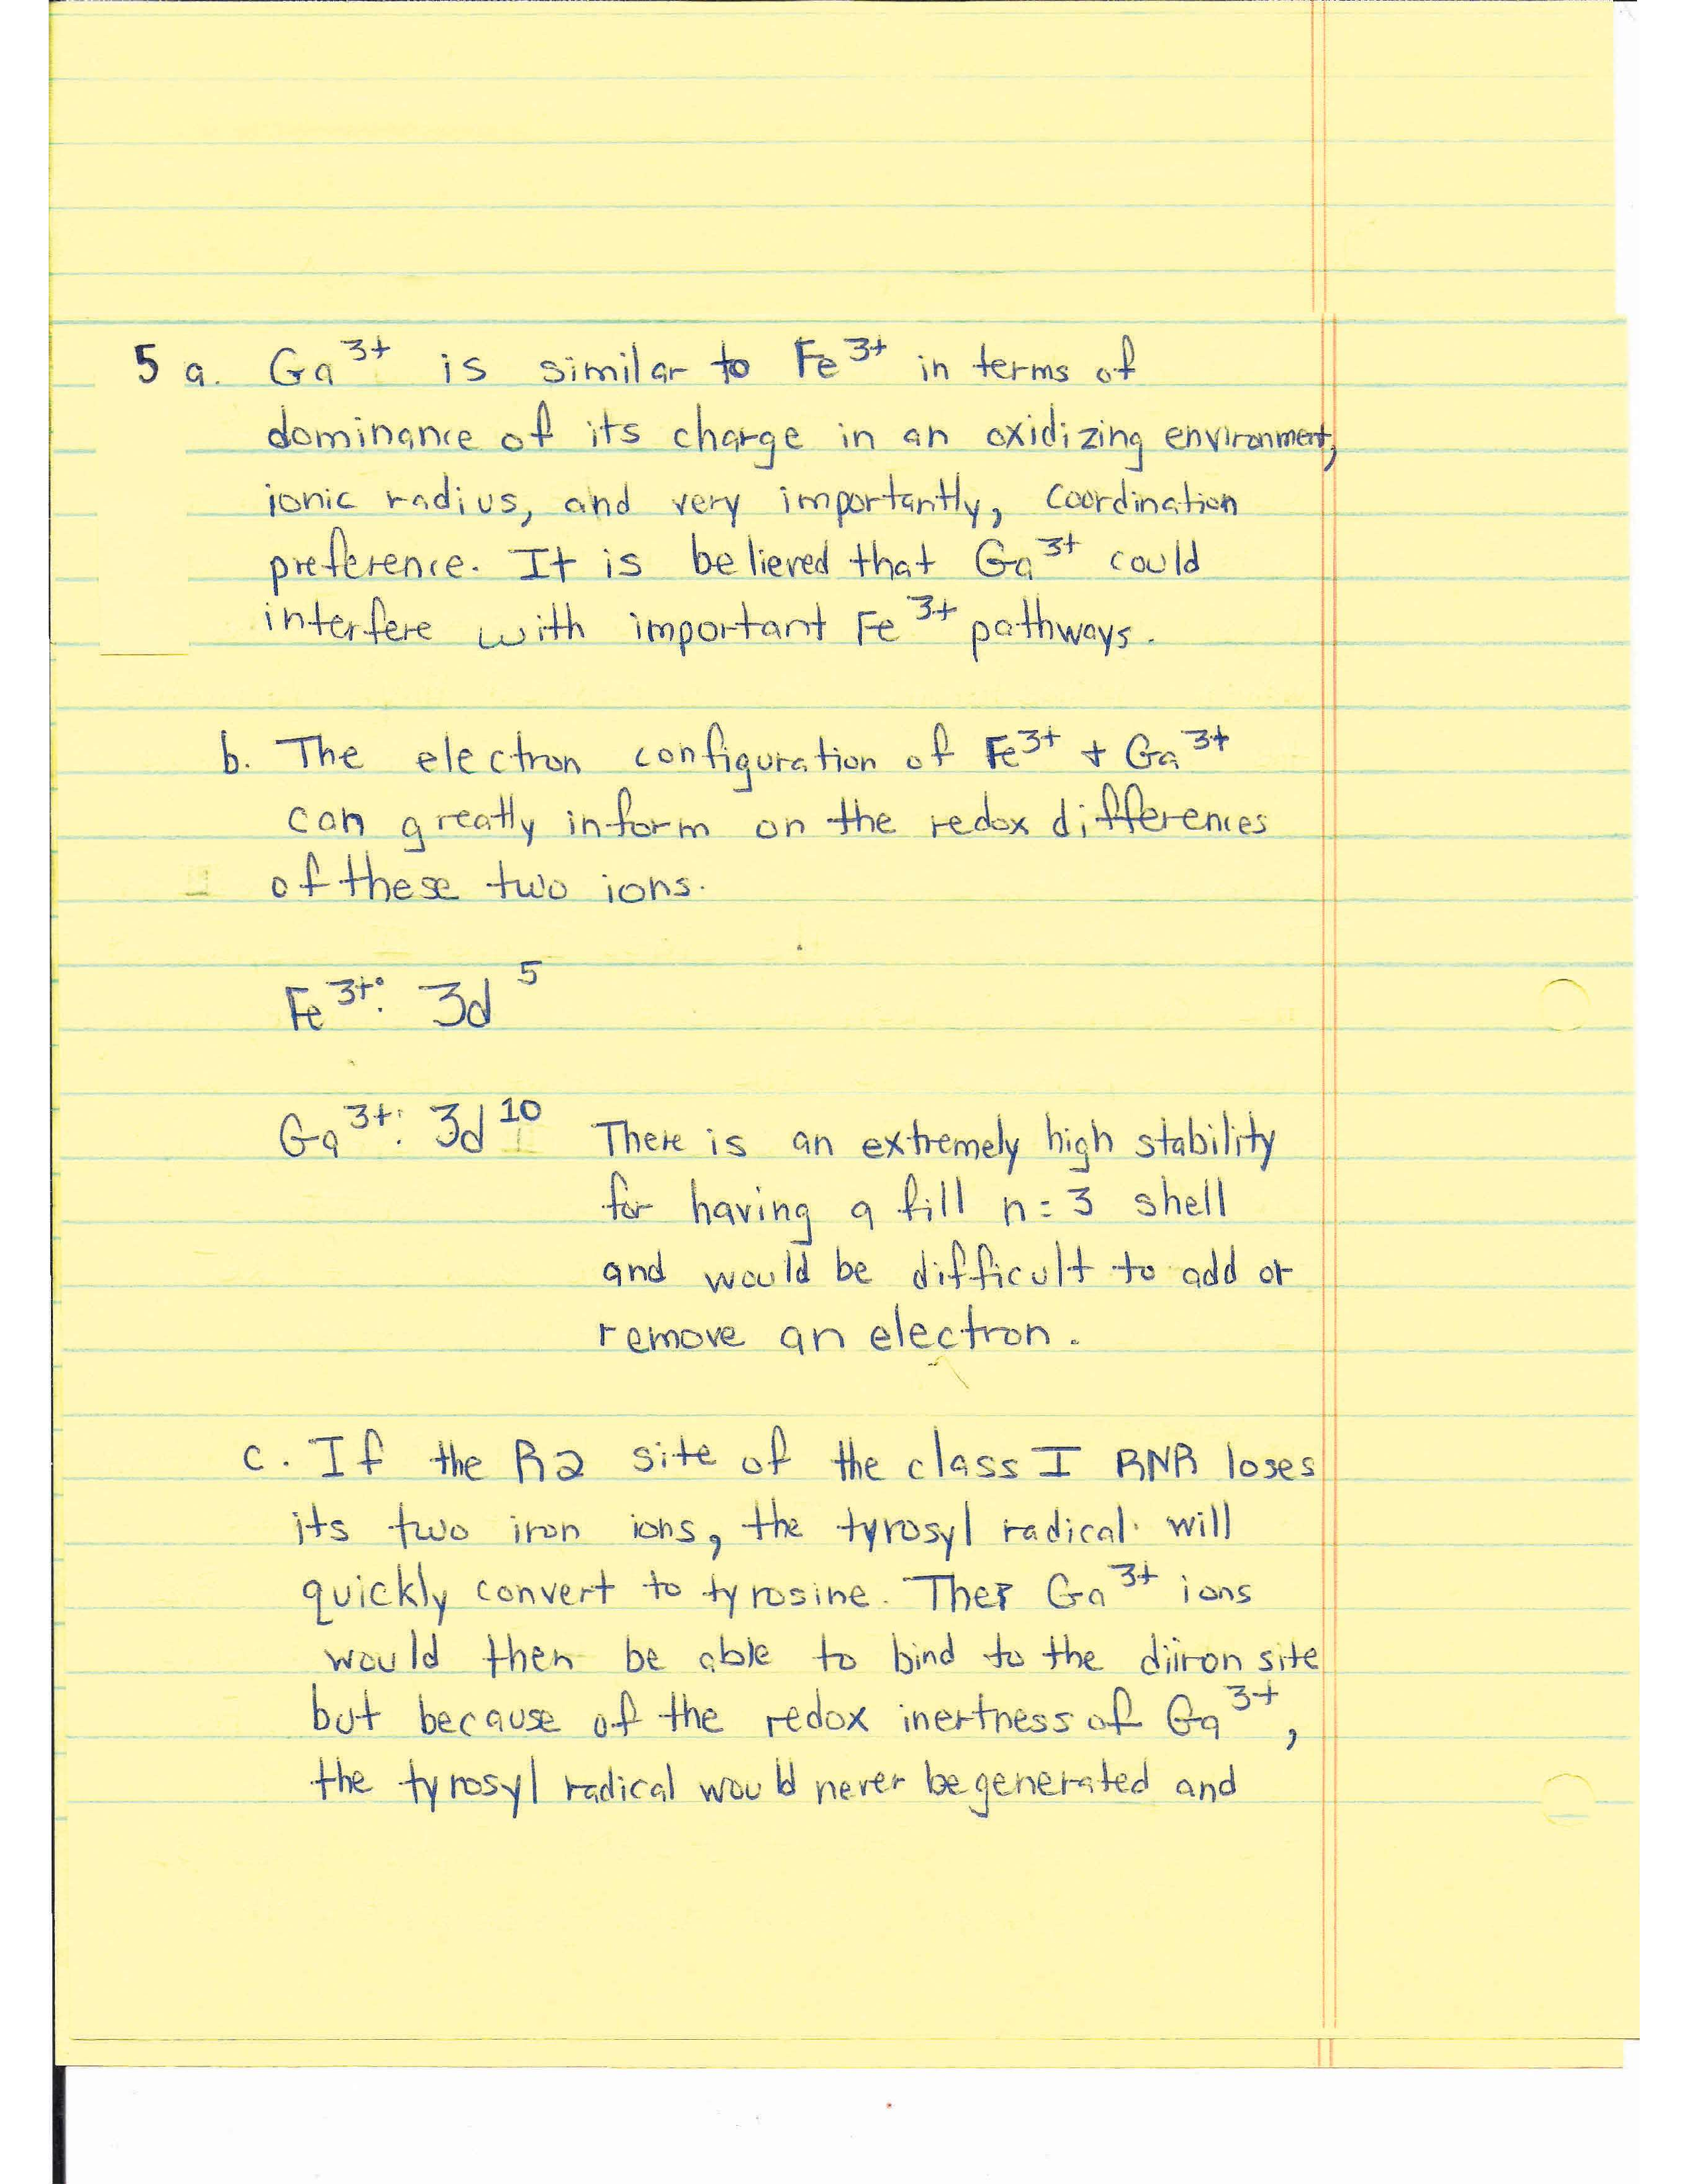 5 a. Ga³⁺ is similar to Fe³⁺ in terms of
dominance of its charge in an oxidizing environment,
ionic radius, and very importantly, coordination
preference. It is believed that Ga³⁺ could
interfere with important Fe³⁺ pathways.
b. The electron configuration of Fe³⁺ + Ga³⁺
can greatly inform on the redox differences
of these two ions.
Fe³⁺: 3d⁵
Ga³⁺: 3d¹⁰ There is an extremely high stability
for having a fill n=3 shell
and would be difficult to add or
remove an electron.
c. If the R2 site of the class I RNR loses
its two iron ions, the tyrosyl radical will
quickly convert to tyrosine. Ga³⁺ ions
would then be able to bind to the diiron site
but because of the redox inertness of Ga³⁺,
the tyrosyl radical would never be generated and